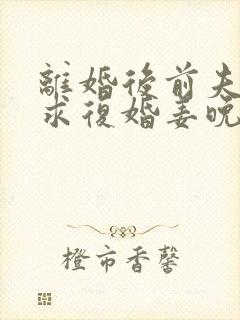 離婚後前夫
求復婚姜晚
橙市香馨